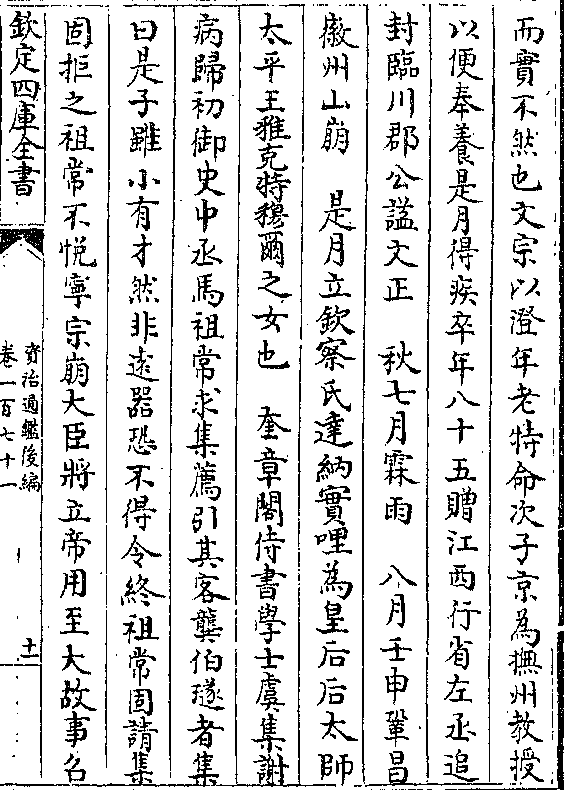 而實不然也文宗以澄年老特命次子京為撫州教授
以便奉養是月得疾卒年八十五贈江西行省左丞追
封臨川郡公諡文正　秋七月霖雨　八月壬申鞏昌
徽州山崩　是月立欽察氏達納實哩為皇后后太師
太平王雅克特穆爾之女也　奎章閣侍書學士虞集謝
病歸初御史中丞馬祖常求集薦引其客龔伯璲者集
曰是子雖小有才然非遠器恐不得令終祖常固請集
固拒之祖常不悦寧宗崩大臣將立帝用至大故事召
欽定四庫全書
資治通鑑後編
卷一百七十一
十一